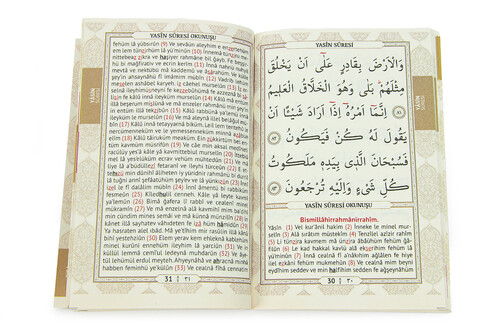 YASÎN SÛRESİ
وَالْاَرْضَ بِقَادِرٍ عَلٰٓى اَنْ يَخْلُقَ
مِثْلَهُمْ بَلٰى وَهُوَ الْخَلَّاقُ الْعَلِيمُ
﴿٨١﴾ اِنَّمَٓا اَمْرُهُٓ اِذَٓا اَرَادَ شَيْئًا اَنْ
يَقُولَ لَهُ كُنْ فَيَكُونُ ﴿٨٢﴾
فَسُبْحَانَ الَّذِي بِيَدِهِ مَلَكُوتُ
كُلِّ شَيْءٍ وَاِلَيْهِ تُرْجَعُونَ ﴿٨٣﴾
YASÎN SÛRESİ OKUNUŞU
Bismillâhirrahmânirrahîm.
Yâsîn (1) Vel kur'ânil hakîm (2) İnneke le minel mur-
selîn (3) Alâ sırâtın müstekîm (4) Tenzîlel azîzir rahîm
(5) Li tünzira kavmem mâ ünzira âbâühüm fehüm gâfi-
lûn (6) Le kad hakkal kavlü alâ ekserihim fehüm lâ yü'mi-
nûn (7) İnnâ cealnâ fî a'nâkıhim ağlâlen fe hiye
ilel ezkâni fehüm mukmehûn (8) Ve cealnâ mim beyni
eydîhim sedden ve min halfihim sedden fe ağşeynâhüm
30 | ٣٠
YÂSÎN
SÛRESİ
YASÎN SÛRESİ OKUNUŞU
fehüm lâ yübsırûn (9) Ve sevâün aleyhim e enzertehüm
em lem tünzirhüm lâ yü'minûn (10) İnnemâ tünziru me-
nittebeaz zikra ve haşiyer rahmâne bil ğayb. Fe beşşir-
hü bi mağfirativ ve ecrin kerîm (11) İnnâ nahnü nuhyil
mevtâ ve nektübü mâ kaddemû ve âsârahüm ve külle
şey'in ahsaynâhü fî imâmim mübîn (12) Vadrib lehüm
meselen ashâbel karyeh. iz câehel murselûn (13) İz er-
selnâ ileyhimüsneyni fe kezzebûhümâ fe azzeznâ bi
sâlisin fe kâlû innâ ileyküm murselûn (14) Kâlû mâ entüm
illâ beşerum mislünâ ve mâ enzeler rahmânü min şey'in
in entüm illâ tekzibûn (15) Kâlû rabbünâ ya'lemü innâ
ileyküm le murselûn (16) Ve mâ aleynâ illel belâğul mü-
bîn (17) Kâlû innâ tetayyernâ biküm. Lein lem tentehû le
nercümenneküm ve le yemessenneküm minnâ azâbün
elîm (18) Kâlû tâiruküm meâküm. Ein zükkirtüm. bel
entüm kavmüm müsrifûn (19) Ve câe min aksal medîneti
racülüy yes'â kâle yâ kavmittebiul murselîn (20) İttebiû
mel lâ yes'elüküm ecrav vehüm mühtedûn (21) Ve mâ
liye lâ a'büdüllezî fetaranî ve ileyhi türceûn (22) Eettehizü
min dûnihî âliheten iy yüridnir rahmânü bi durril lâ
tuğni annî şefâatühüm şey'ev ve lâ yünkızûn (23) İnnî
izel le fî dalâlim mübîn (24) İnnî âmentü bi rabbiküm
fesmeûn (25) Kîledhulil cenneh. Kâle yâ leyte kavmî
ya'lemûn (26) Bimâ ğafera lî rabbî ve cealenî minel
mükramîn (27) Ve mâ enzelnâ alâ kavmihî min ba'dihî
min cündim mines semâi ve mâ künnâ münzilîn (28) İn
kânet illâ sayhaten vâhideten fe izâ hüm hâmidûn (29)
Ya hasraten alel ıbâd. Mâ ye'tîhim mir rasûlin illâ kânû
bihî yestehziûn (30) Elem yerav kem ehleknâ kablehüm
minel kurûni ennehüm ileyhim lâ yarciûn (31) Ve in
küllül lemmâ cemîul ledeynâ muhdarûn (32) Ve âye-
tül lehümül erdul meyteh. Ahyeynâhâ ve ahracnâ minhâ
habben feminhü ye'külûn (33) Ve cealnâ fîhâ cennatim
31 | ٣١
YÂSÎN
SÛRESİ